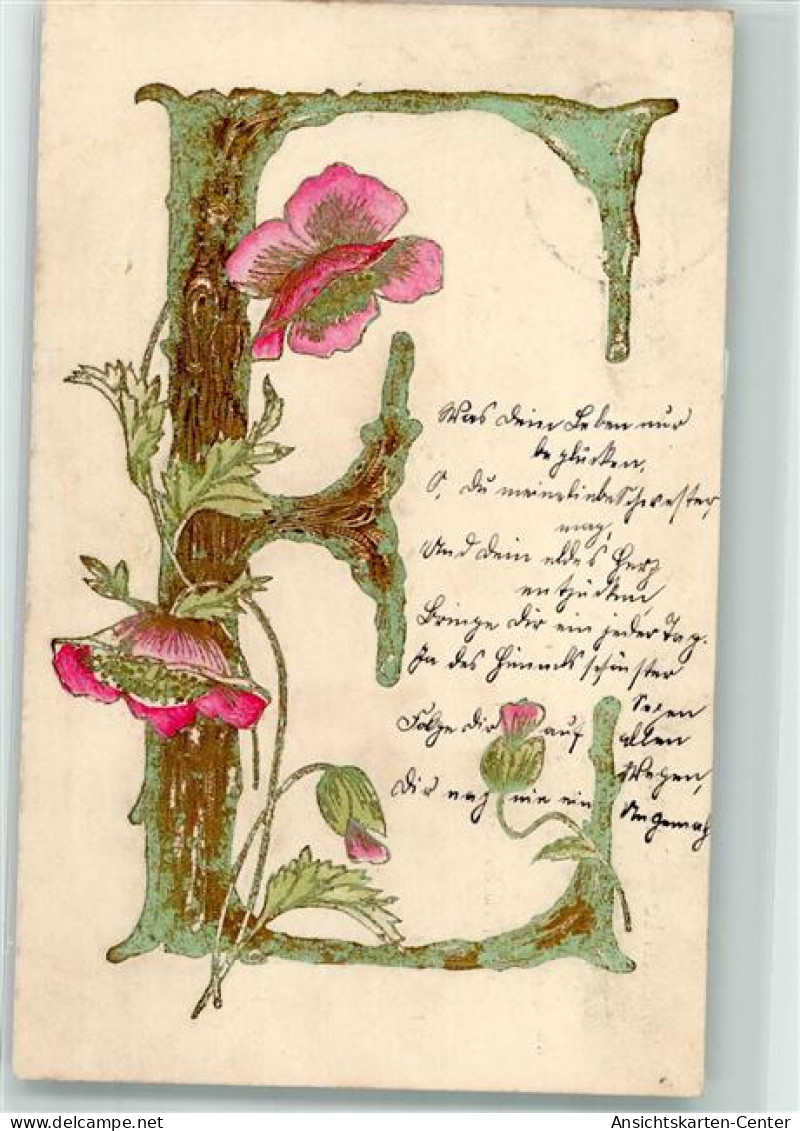 Was dein Leben nur
beglücken,
O, du meine liebe Schwester,
mag,
Und dein edles Herz
entzücken,
Bringe dir ein jeder Tag.
Ja des Himmels schönster
Segen
Folge dir auf allen
Wegen,
Dir nah nie ein Ungemach
Ansichtskarten-Center